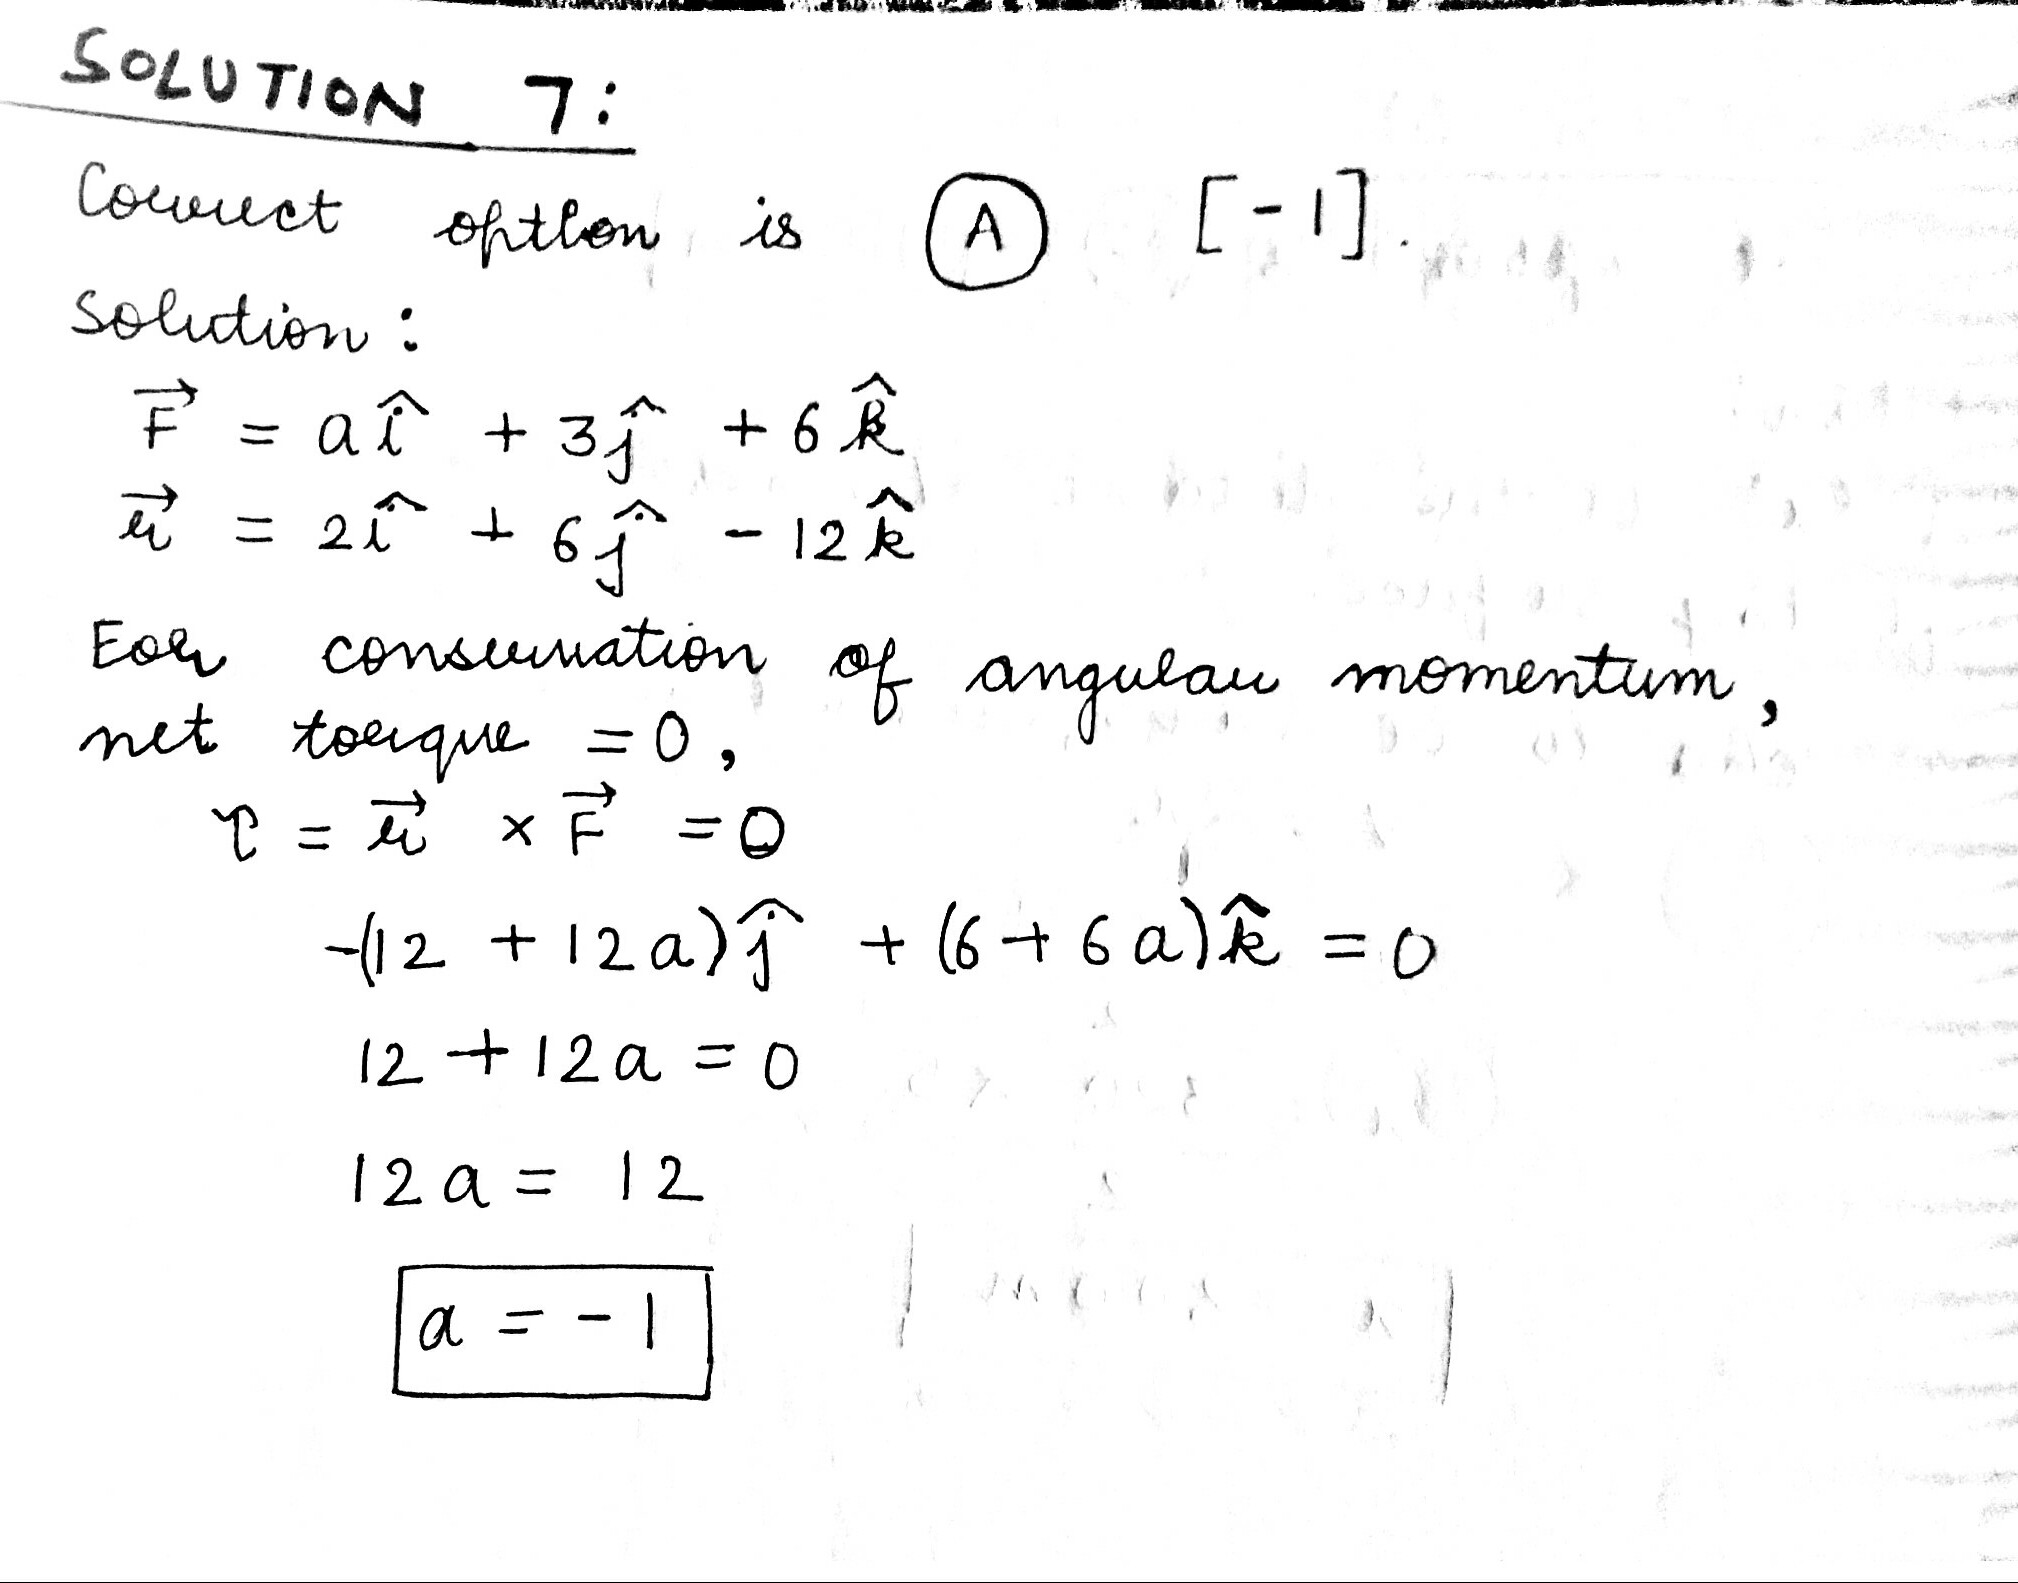 SOLUTION 7:
Correct option is (A) [-1].
Solution:
F⃗ = aî + 3ĵ + 6k̂
r⃗ = 2î + 6ĵ - 12k̂
For conservation of angular momentum,
net torque = 0,
τ = r⃗ × F⃗ = 0
-(12 + 12a)ĵ + (6 + 6a)k̂ = 0
12 + 12a = 0
12a = 12
a = -1